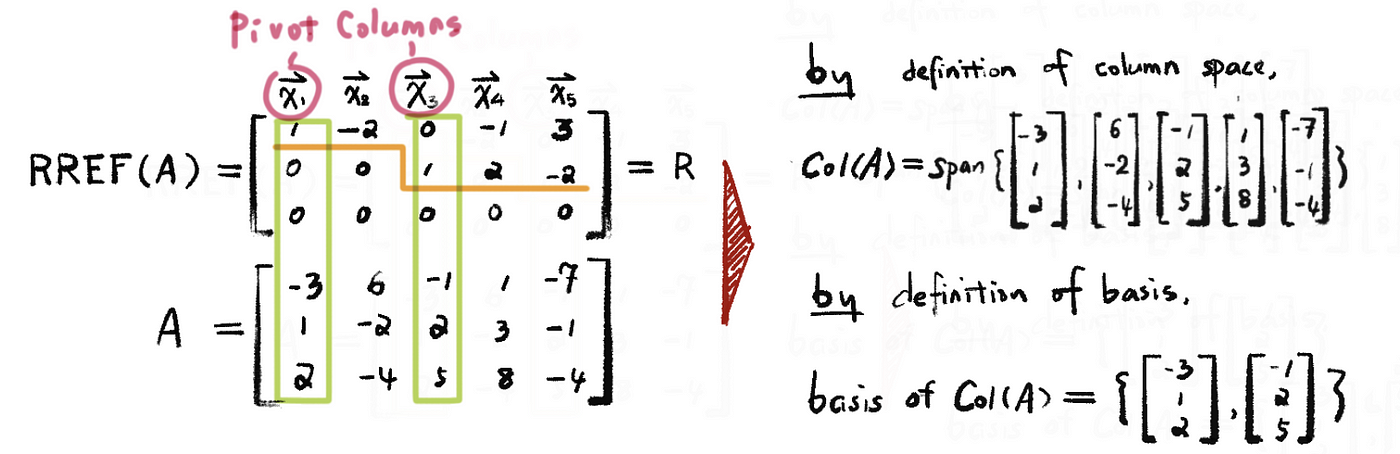 Pivot Columns
x₁ x₂ x₃ x₄ x₅
RREF(A) = [ 1 -2 0 -1 3
0 0 1 2 -2
0 0 0 0 0 ] = R
A = [ -3 6 -1 1 -7
1 -2 2 3 -1
2 -4 5 8 -4 ]
by definition of column space,
Col(A) = span { [-3 1 2], [6 -2 -4], [-1 2 5], [1 3 8], [-7 -1 -4] }
by definition of basis,
basis of Col(A) = { [-3 1 2], [-1 2 5] }